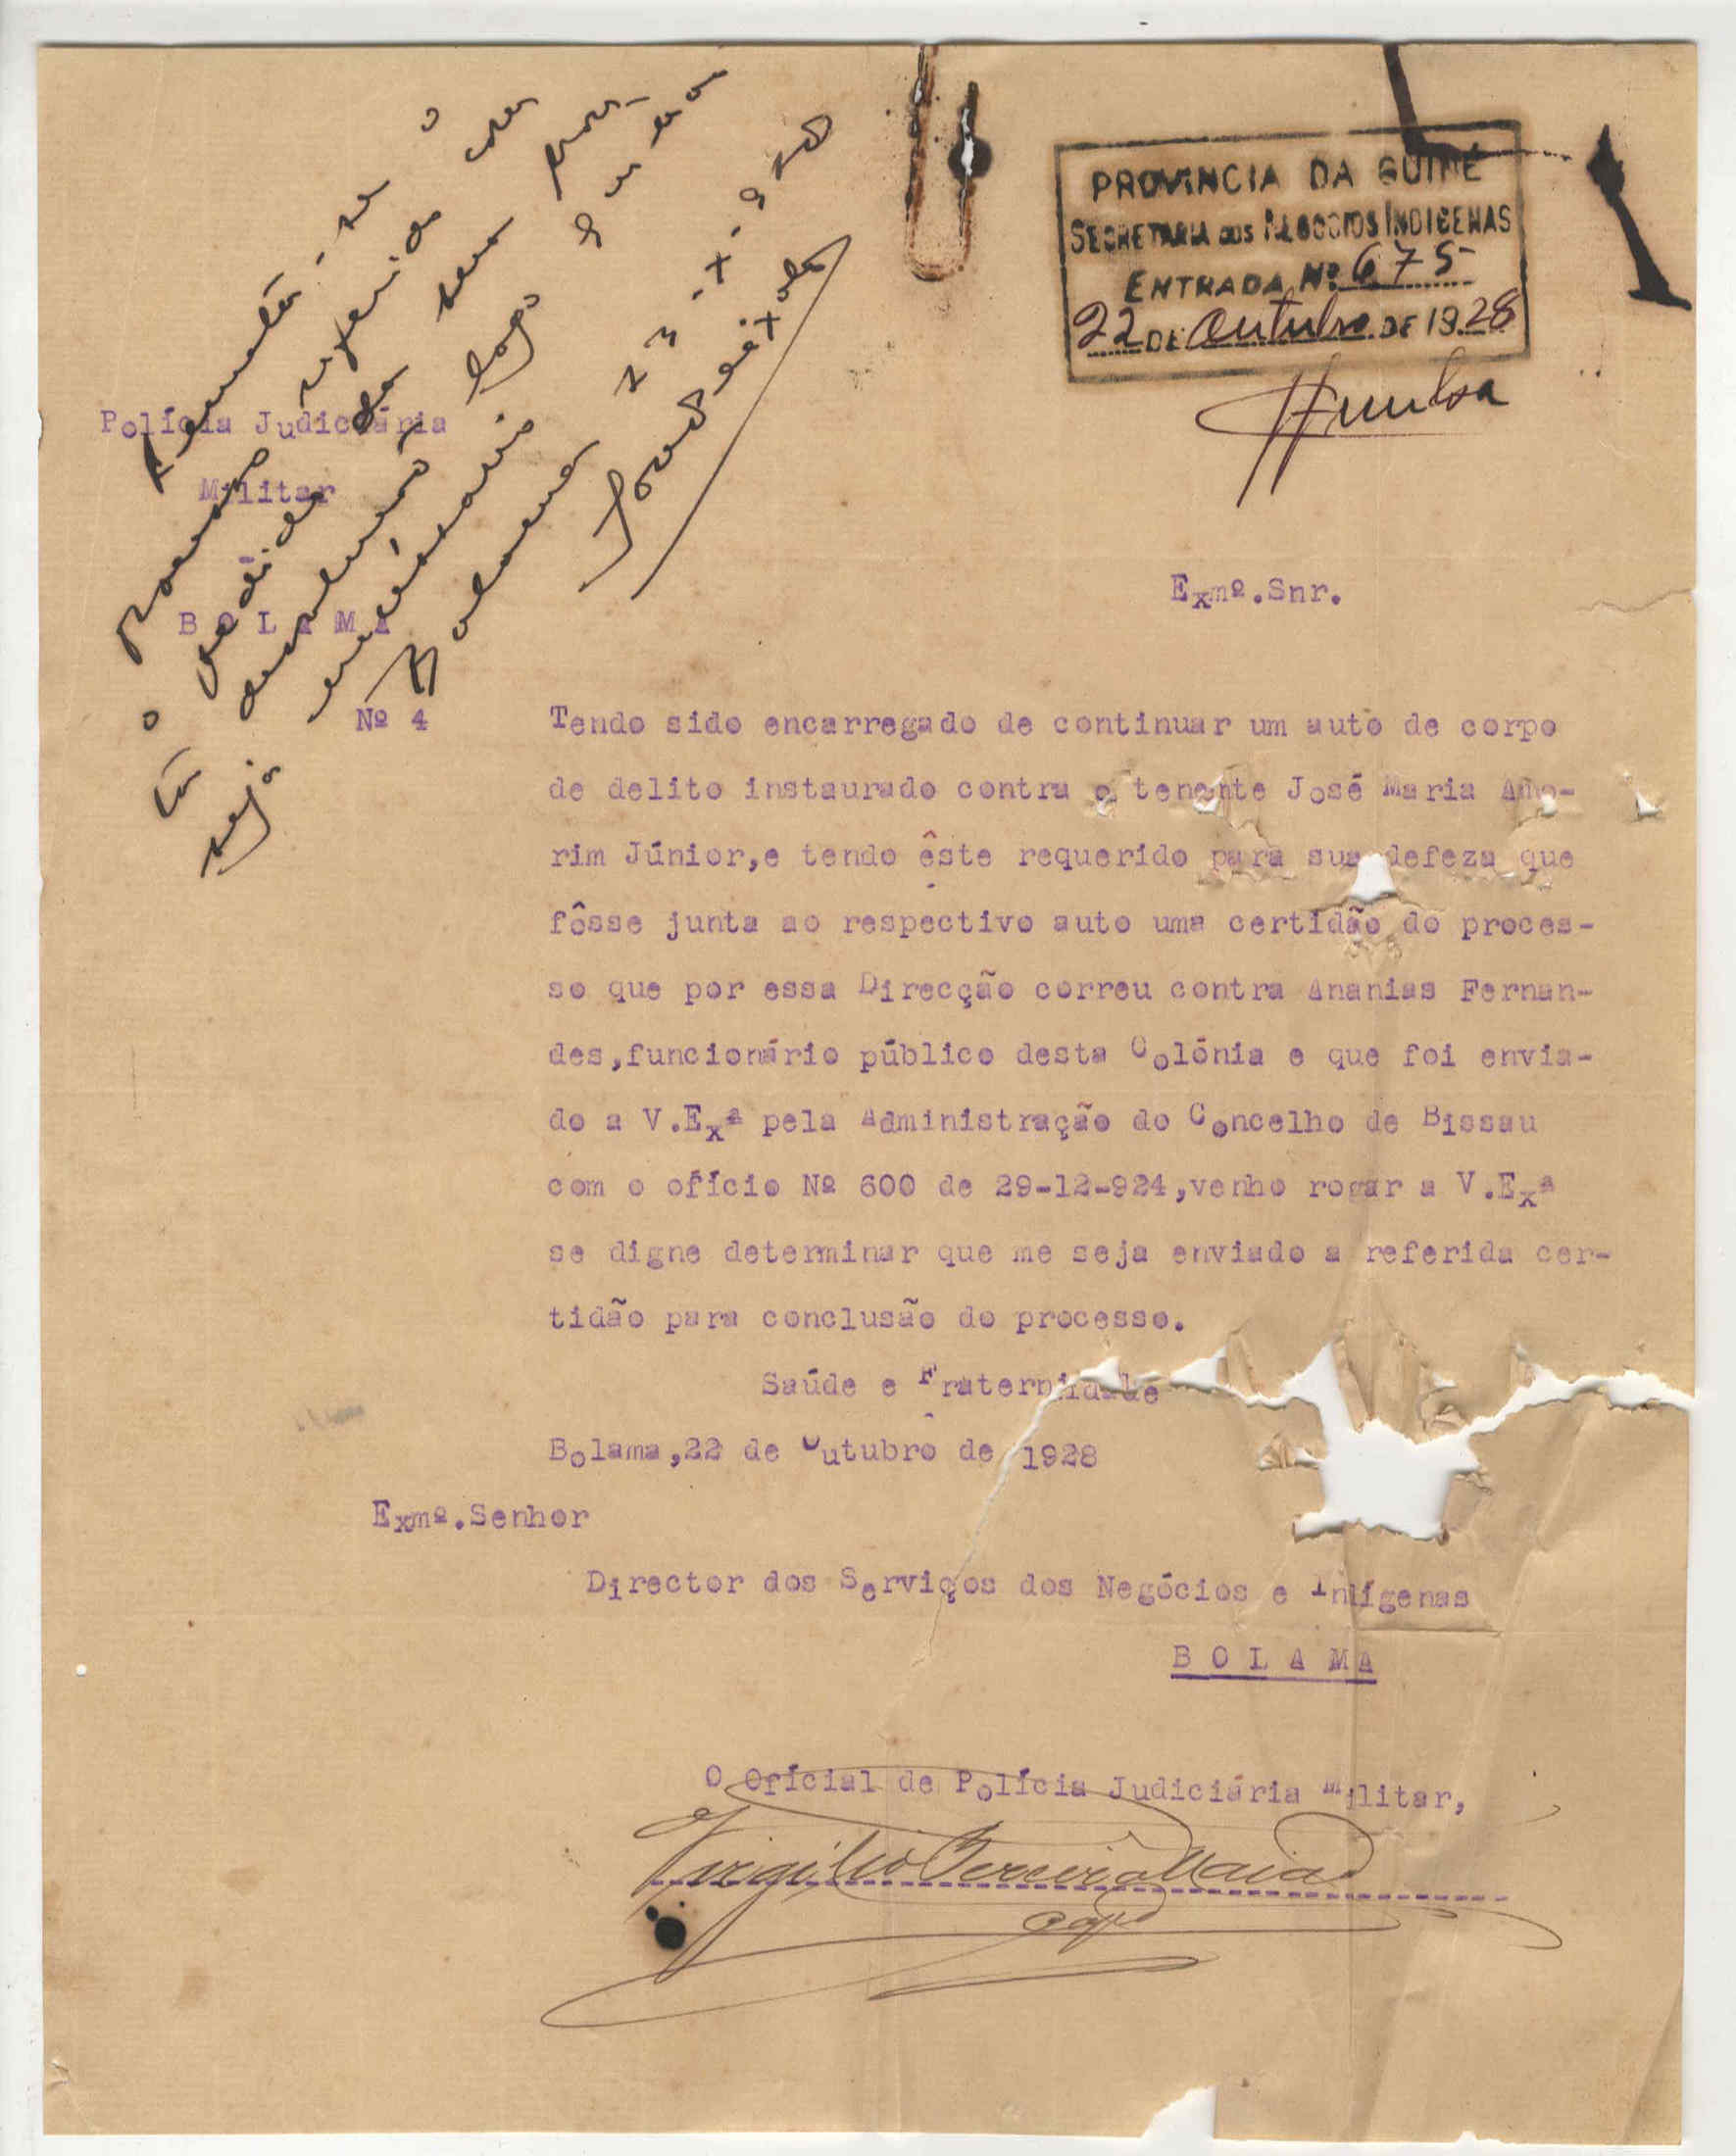 PROVINCIA DA GUINÉ
SECRETARIA DOS NEGOCIOS INDIGENAS
ENTRADA Nº 675
22 DE Outubro DE 1928
Remeta-se o
processo referido com
o pedido da sua
devolução logo
que
seja
Bolama 23-X-928
Polícia Judiciária
Militar
-
B O L A M A
Nº 4
Exmº.Snr.
Tendo sido encarregado de continuar um auto de corpo
de delito instaurado contra o tenente José Maria Amo-
rim Júnior,e tendo êste requerido para sua defeza que
fôsse junta ao respectivo auto uma certidão do proces-
so que por essa Direcção correu contra Ananias Fernan-
des,funcionário público desta Colónia e que foi envia-
do a V.Exª pela Administração do Concelho de Bissau
com o ofício Nº 600 de 29-12-924,venho rogar a V.Exª
se digne determinar que me seja enviado a referida cer-
tidão para conclusão do processo.
Saúde e Fraternidade
Bolama,22 de Outubro de 1928
Exmº.Senhor
Director dos Serviços dos Negócios e Indígenas
B O L A M A
O Oficial de Polícia Judiciária Militar,
Virgilio Pereira Maia
cap